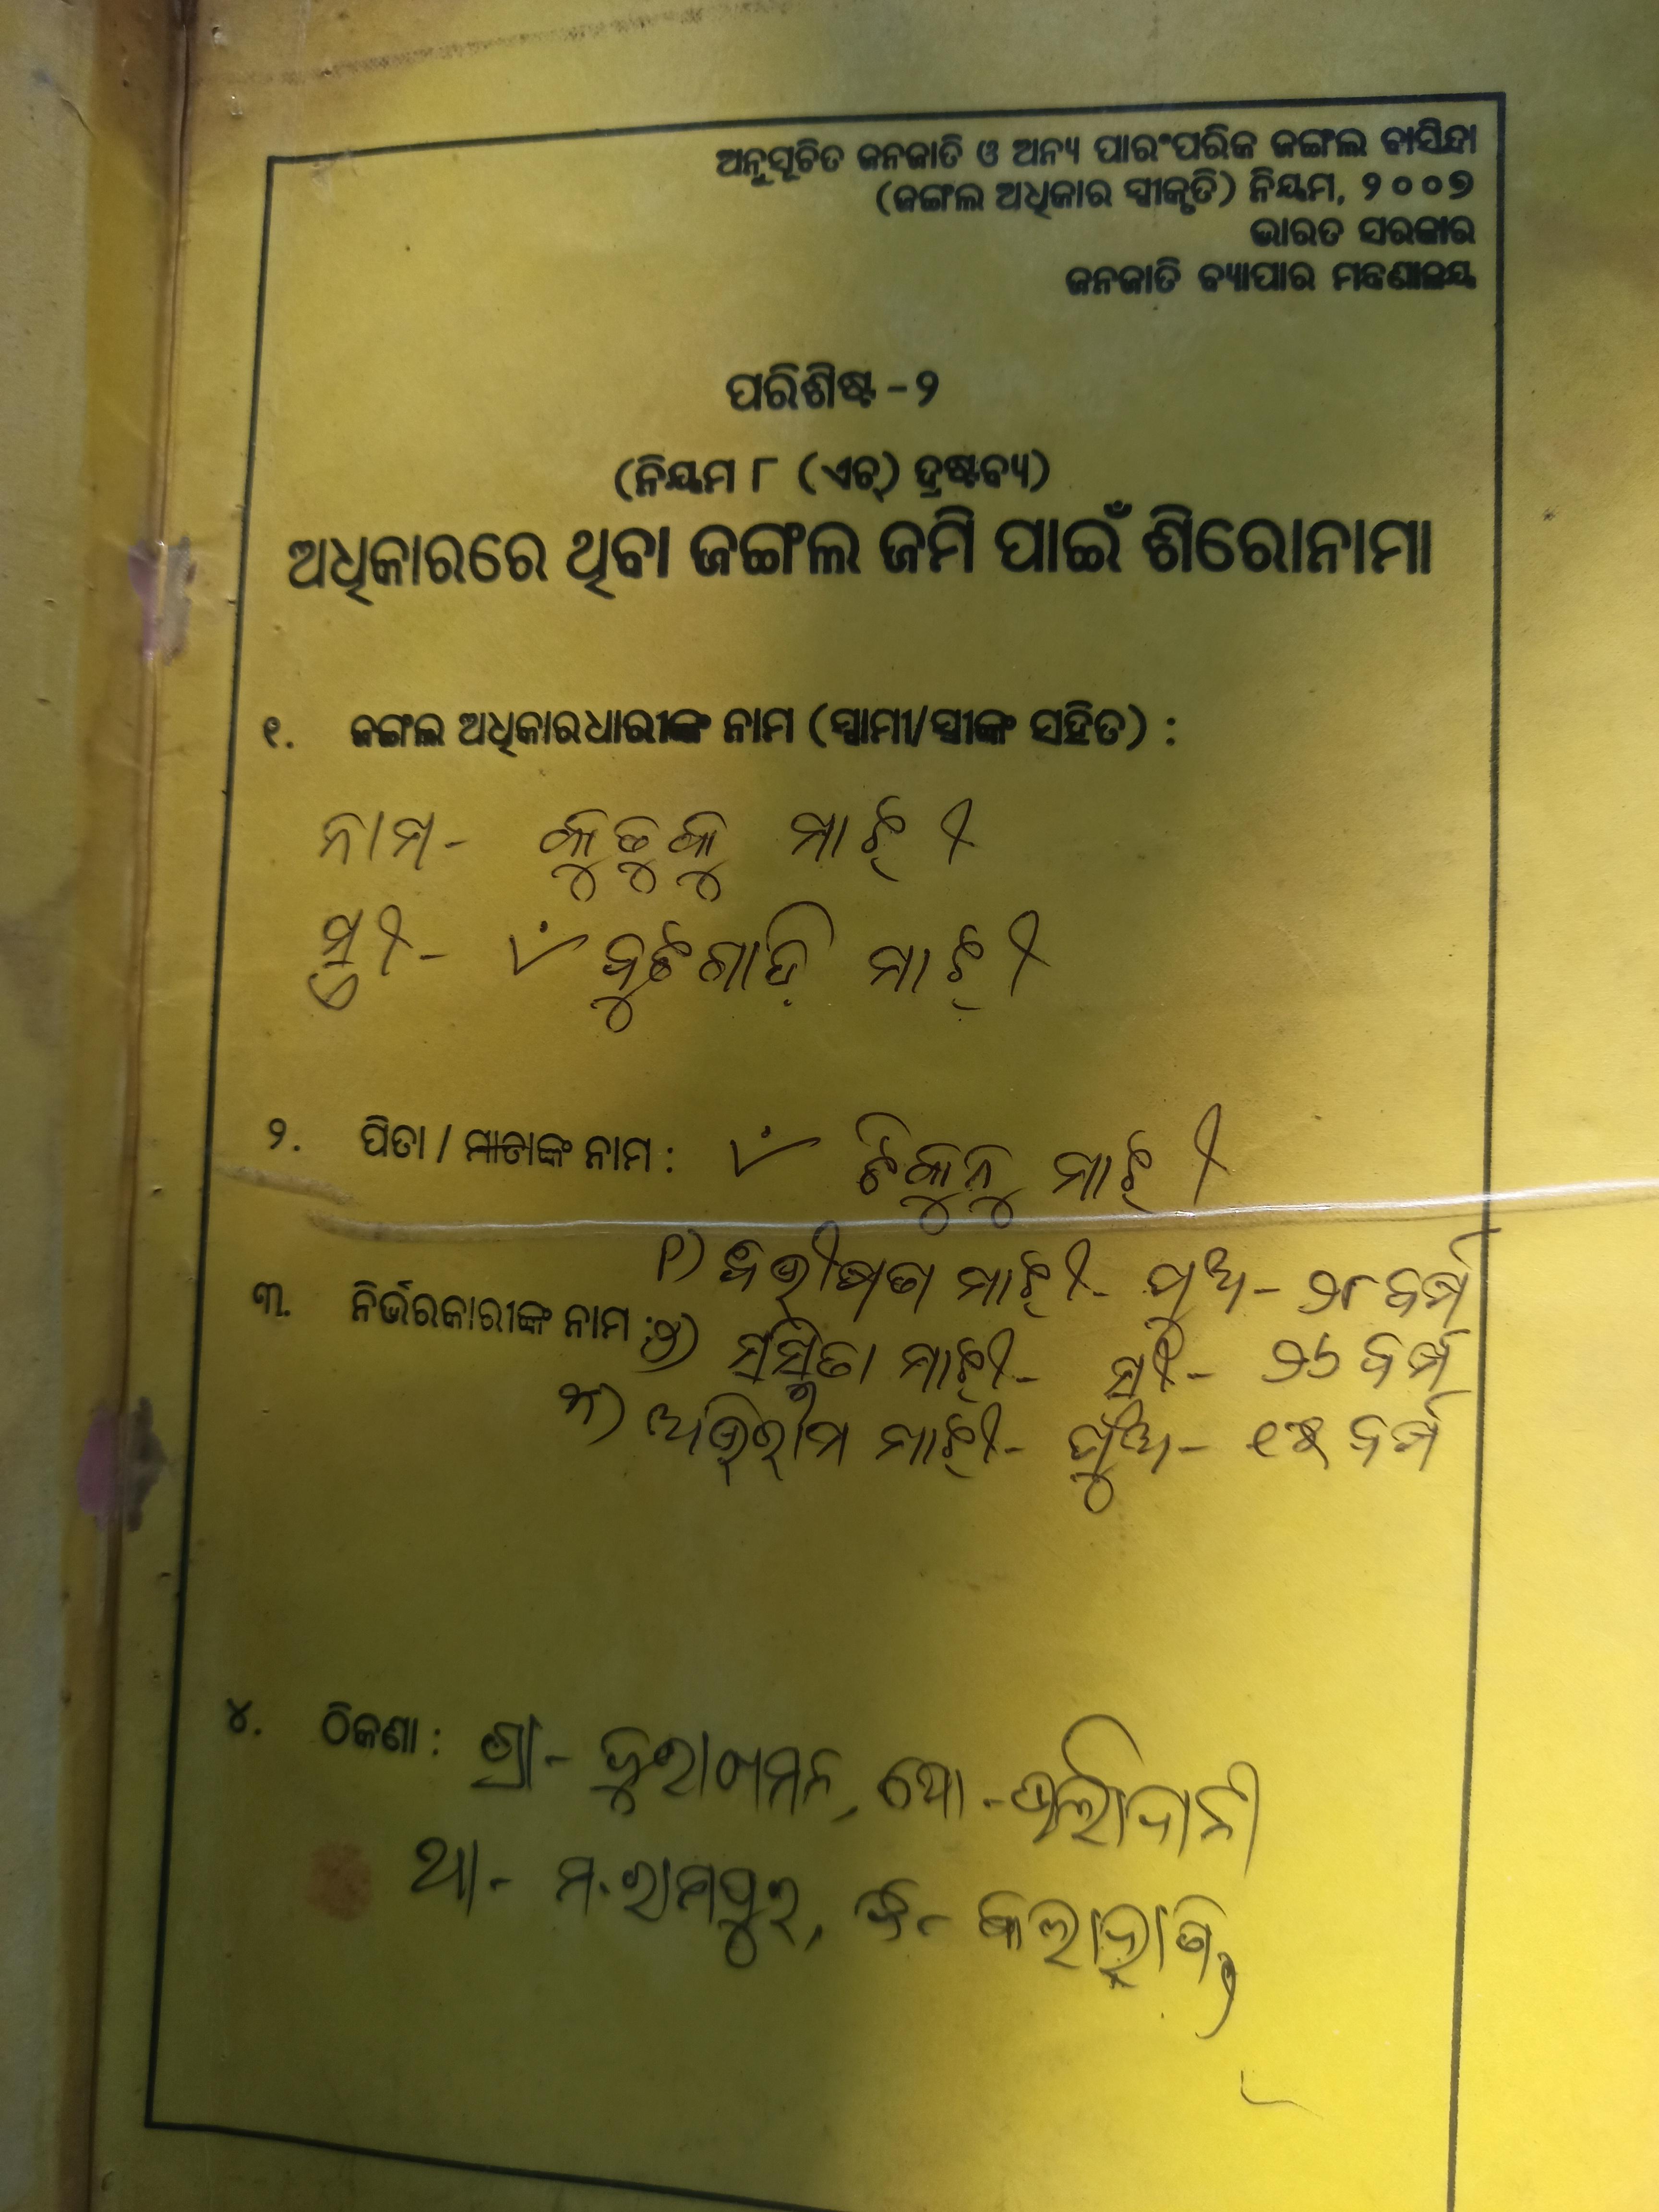 ଅନୁସୂଚିତ ଜନଜାତି ଓ ଅନ୍ୟ ପାରଂପରିକ ଜଙ୍ଗଲ ବାସିନ୍ଦା
(ଜଙ୍ଗଲ ଅଧିକାର ସ୍ୱୀକୃତି) ନିୟମ, ୨୦୦୭
ଭାରତ ସରକାର
ଜନଜାତି ବ୍ୟାପାର ମନ୍ତ୍ରଣାଳୟ
ପରିଶିଷ୍ଟ - ୨
(ନିୟମ ୮ (ଏଚ୍) ଦ୍ରଷ୍ଟବ୍ୟ)
ଅଧିକାରରେ ଥିବା ଜଙ୍ଗଲ ଜମି ପାଇଁ ଶିରୋନାମା
୧. ଜଙ୍ଗଲ ଅଧିକାରଧାରୀଙ୍କ ନାମ (ସ୍ୱାମୀ/ସ୍ତ୍ରୀଙ୍କ ସହିତ) :
ନାମ- କୁଡୁକୁ ମାଝୀ
ସ୍ତ୍ରୀ- ମାଝୀ
୨. ପିତା / ମାତାଙ୍କ ନାମ : ଟିକୁନୁ ମାଝୀ
୧) ମାଝୀ- ପୁଅ- ବର୍ଷ
୩. ନିର୍ଭରକାରୀଙ୍କ ନାମ : ୨) ସସ୍ମିତା ମାଝୀ- ସ୍ତ୍ରୀ- ୨୬ ବର୍ଷ
୩) ଅଭିରାମ ମାଝୀ- ପୁଅ- ବର୍ଷ
୪. ଠିକଣା : ଗ୍ରା- ପୋ-
ଥା- ମ.ରାମପୁର, ଜି- କଳାହାଣ୍ଡି